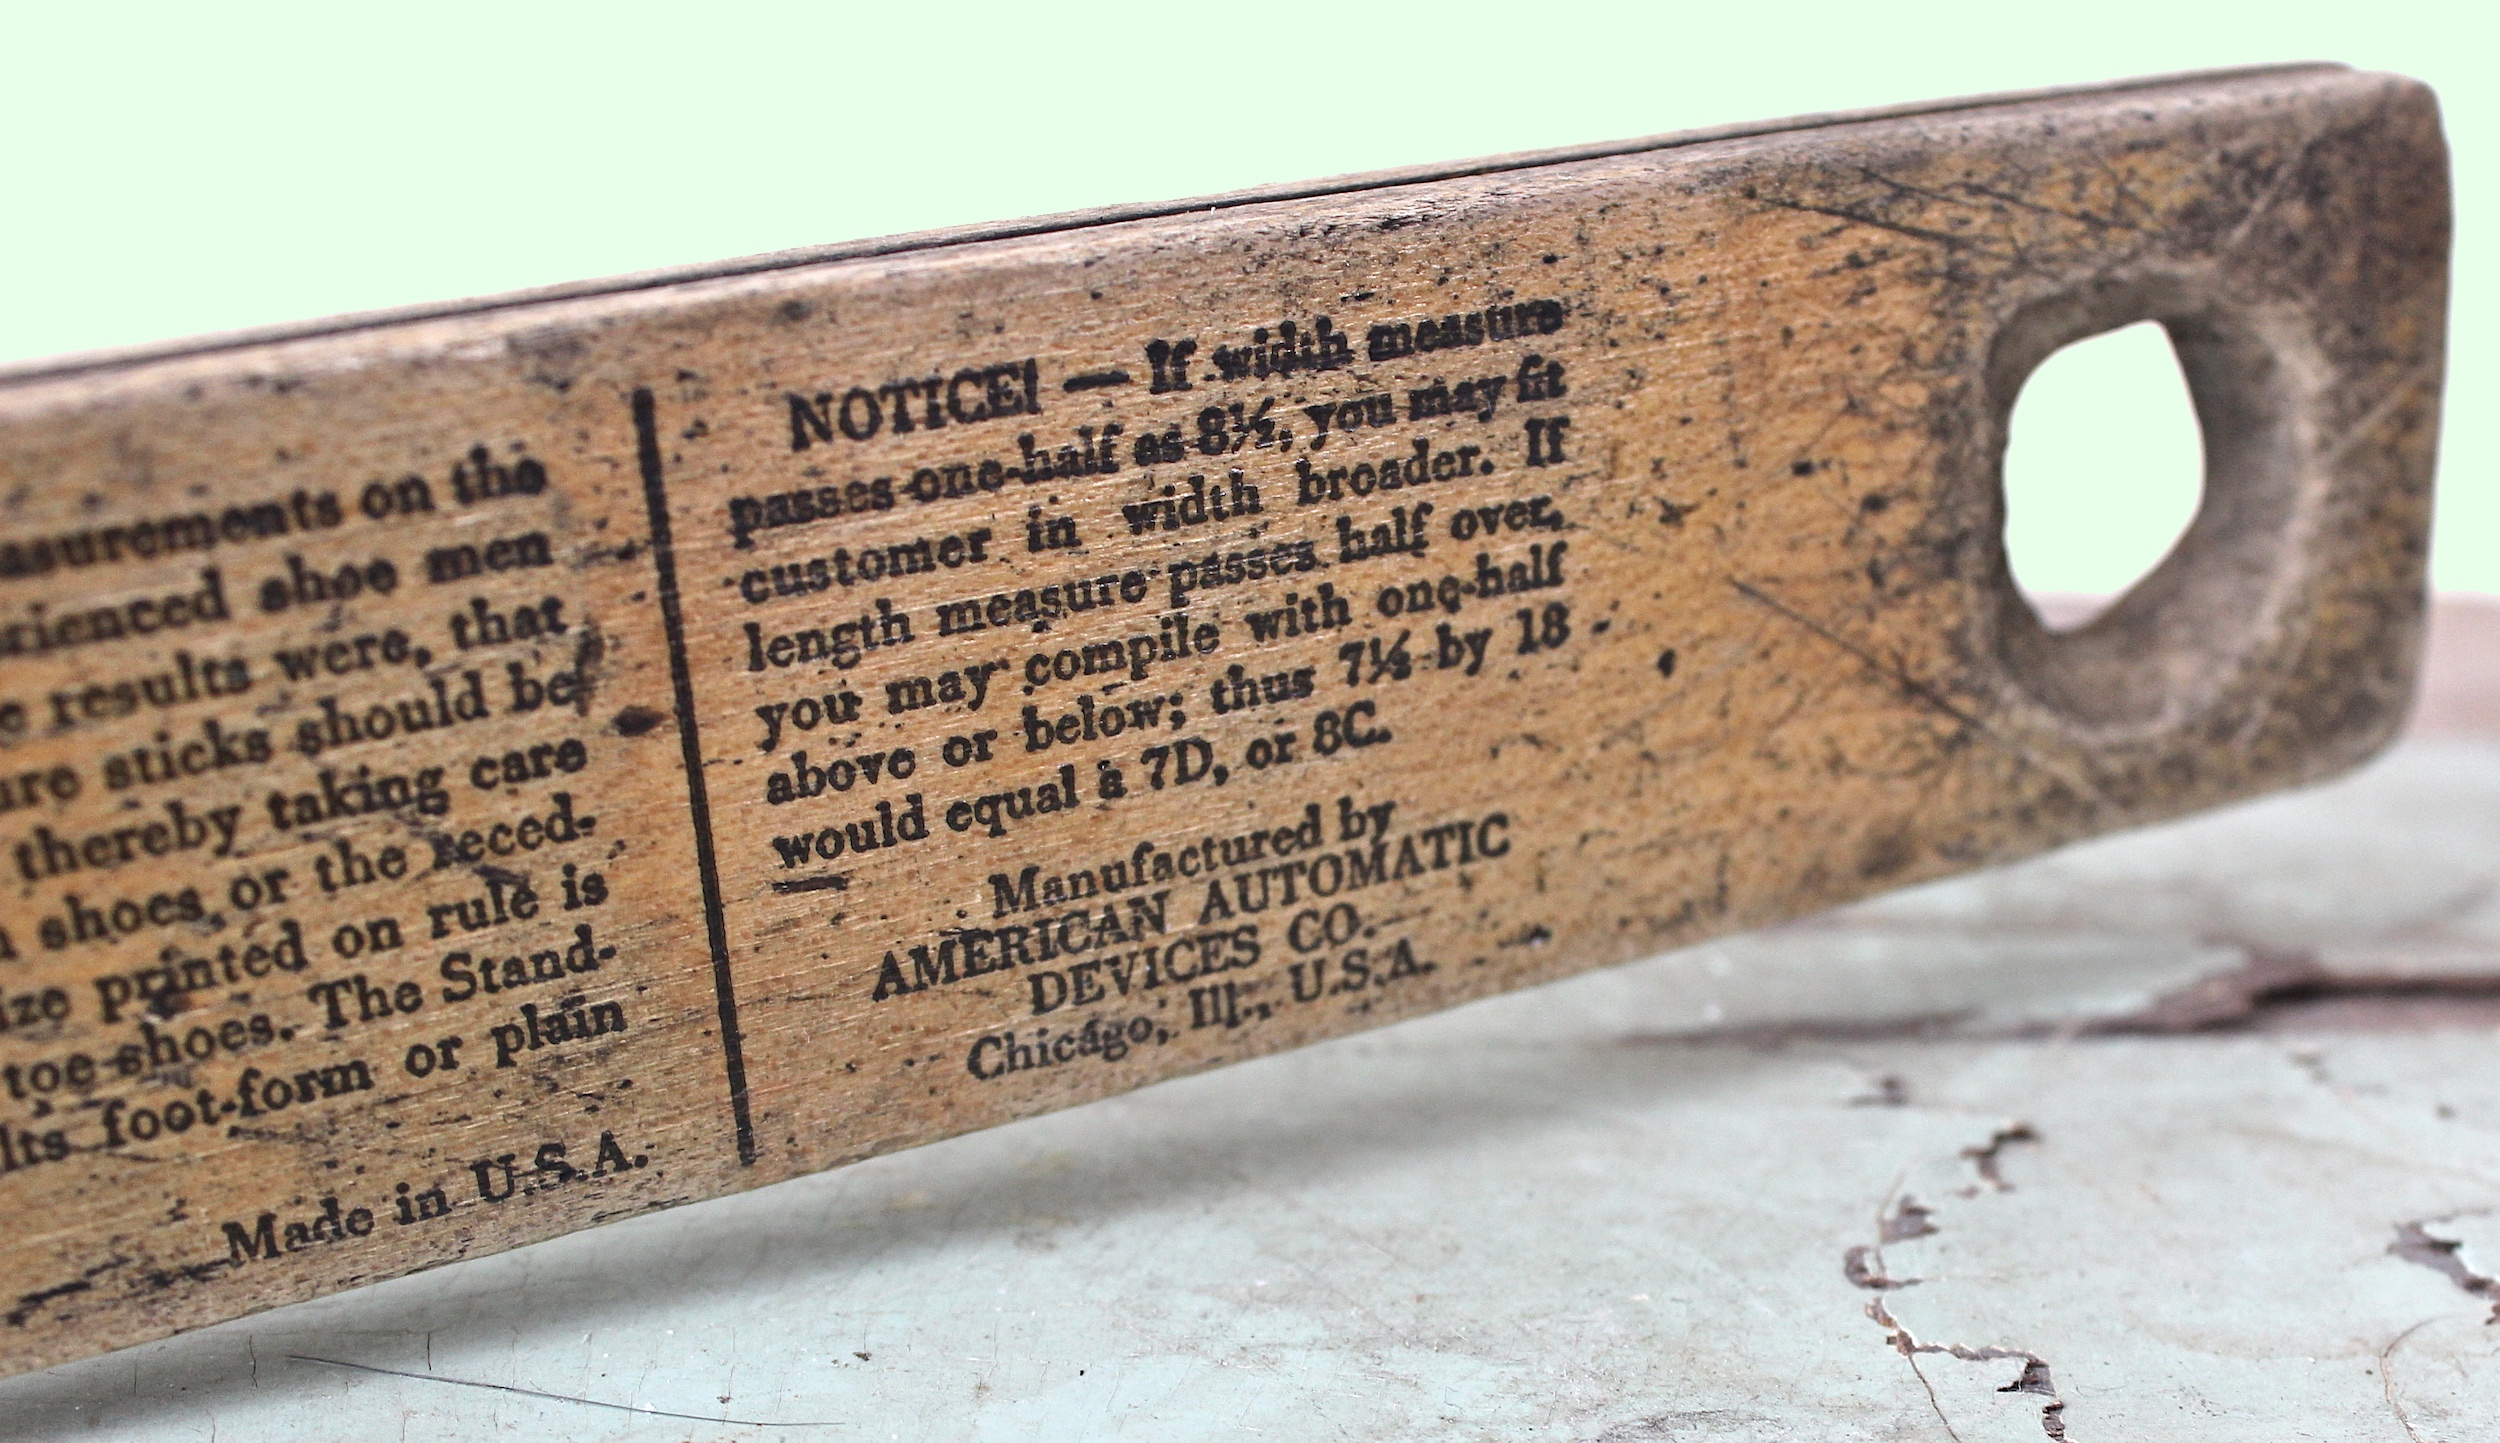 asurements on the
rienced shoe men
e results were, that
ure sticks should be
thereby taking care
shoes, or the reced-
ize printed on rule is
toe shoes. The Stand-
lts foot-form or plain
Made in U.S.A.
NOTICE! — If width measure
passes one-half as 8½, you may fit
customer in width broader. If
length measure passes half over,
you may compile with one-half
above or below; thus 7½ by 18
would equal a 7D, or 8C.
Manufactured by
AMERICAN AUTOMATIC
DEVICES CO.
Chicago, Ill., U.S.A.